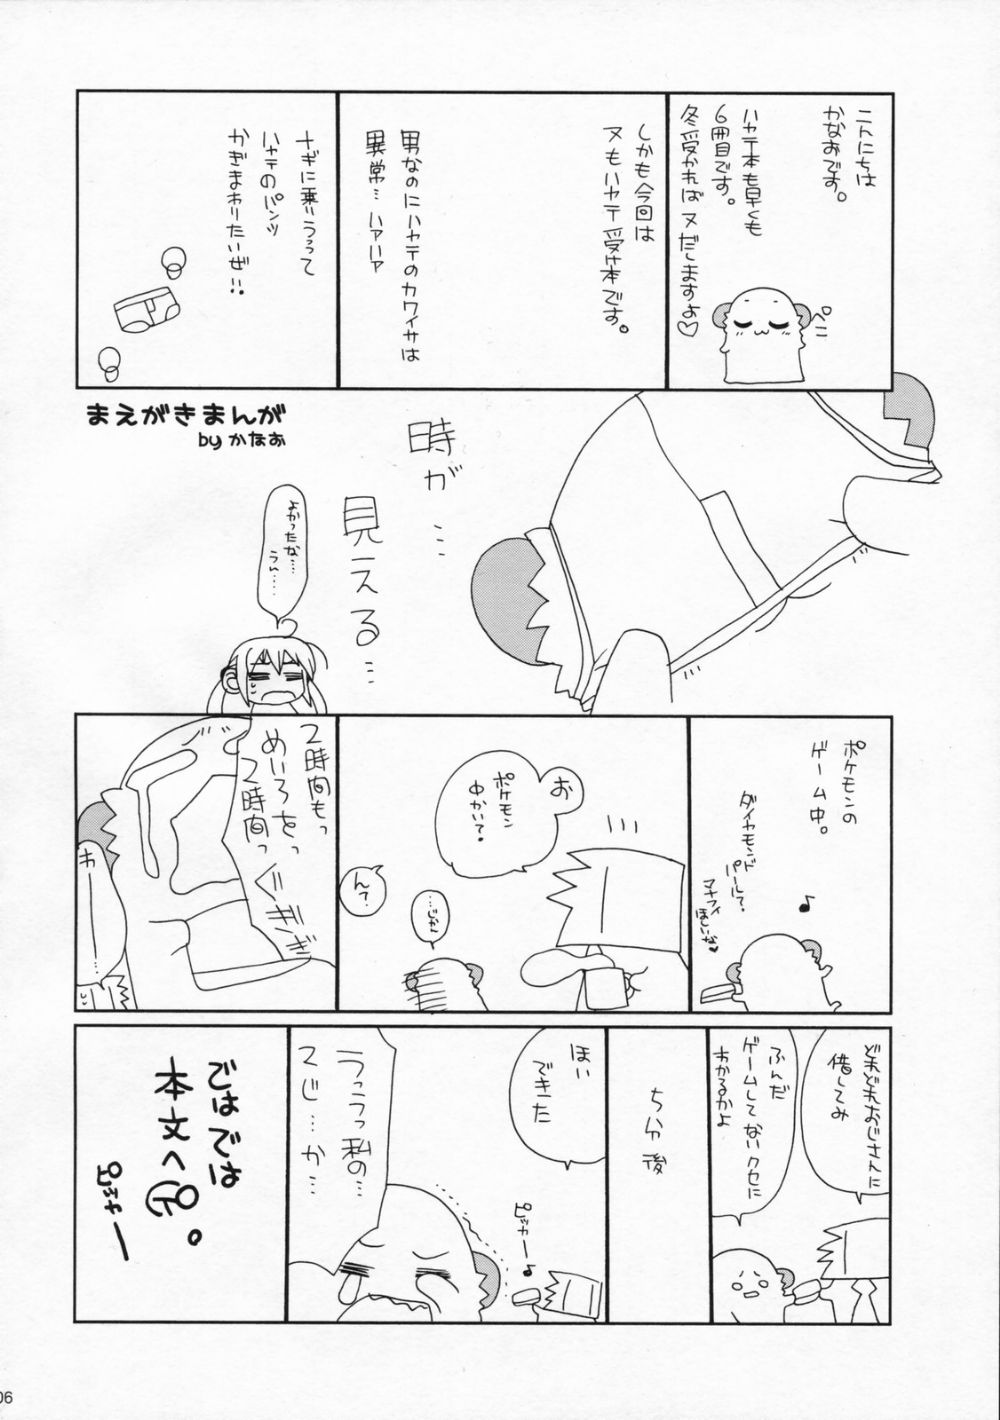 こんにちは
かなおです。
ハヤテ本も早くも
6冊目です。
冬受かればヌだしますよ♡
ペこ
しかも今回は
ヌもハヤテ受け本です。
男なのにハヤテのカワイサは
異常…ハアハア
ナギに乗りうつって
ハヤテのパンツ
かぎまわりたいぜ!!
まえがきまんが
by かなお
時が…
見える…
よかったな…
うん…
ポケモンの
ゲーム中。
ダイヤモンド
パールで。
マナフィ
ほしいな♥
♪
お
ポケモン
中かい?
…じかん
んで?
2時間もっ
めいろをっ
2時間っ
ギギギ
わ
ー
…
どれどれおじさんに
借してみ
ふんだ
ゲームしてないクセに
わかるかよ
5分後
ほい
できた
ピッカー♪
うっうっ私の…
2じ…か…
ではでは
本文へGO。
ピッカー
06